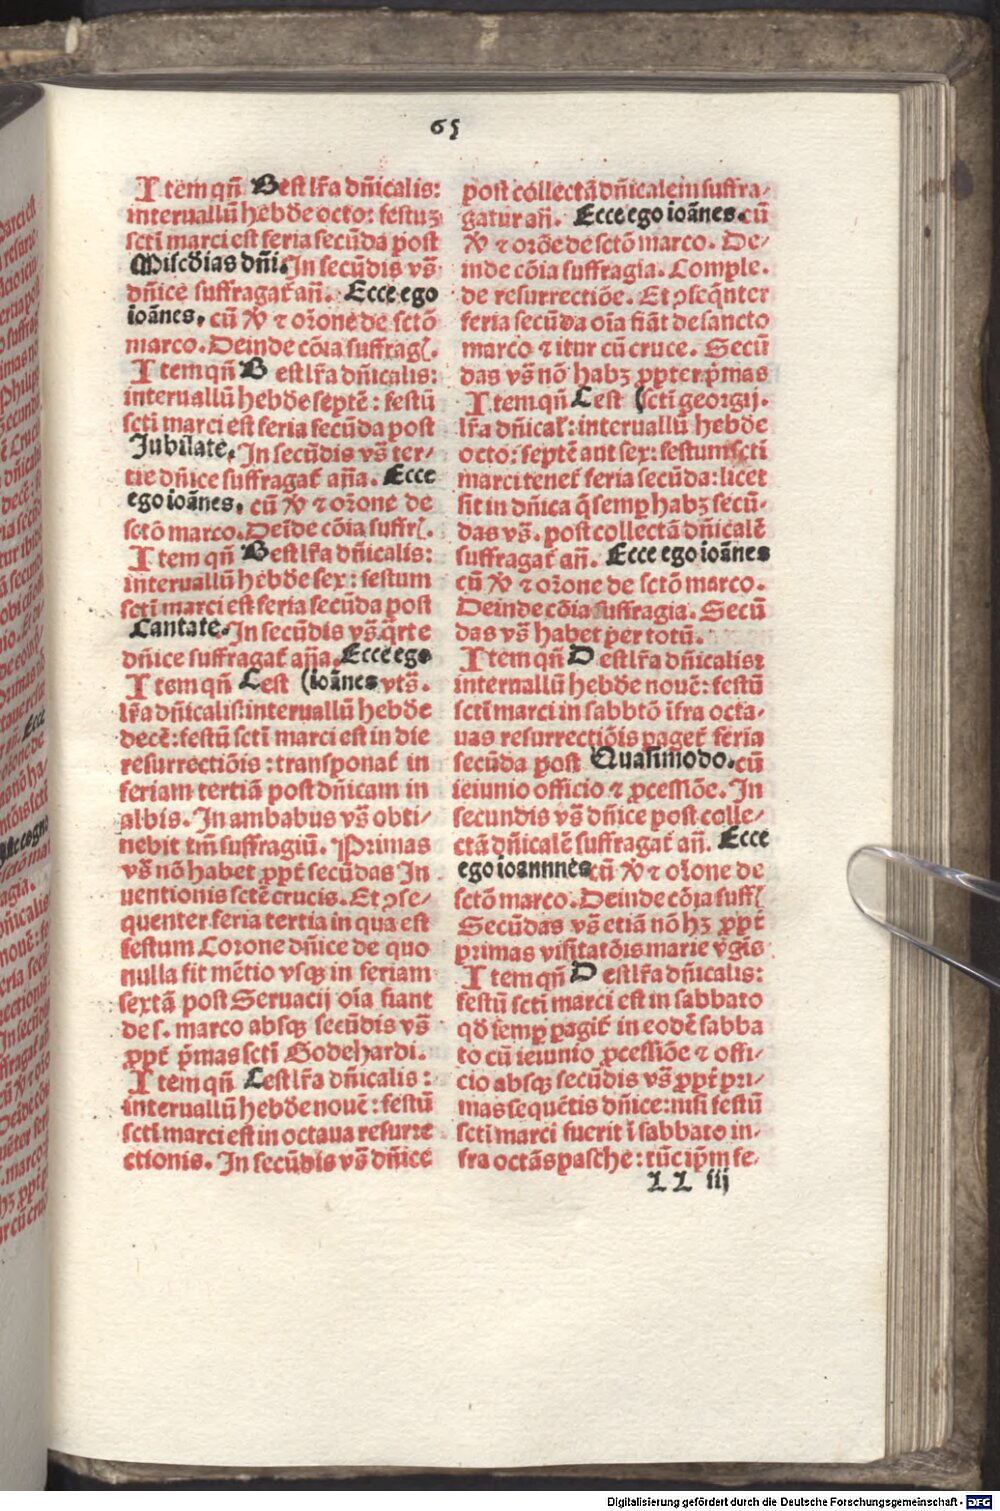 65
Itē qñ Best lr̄a dñicalis:
interuallū hebd̄e octo: festuʒ
sctī marci est feria secūda post
Misc̄dias dñi. In secūdis vs̄
dñice suffragat̄ añ. Ecce ego
ioānes. cū ℣ ⁊ orōne de sctō
marco. Deinde cōia suffragꝭ.
Item qñ B est lr̄a dñicalis:
interuallū hebd̄e septē: festū
sctī marci est feria secūda post
Jubilate. In secūdis vs̄ ter⸗
tie dñice suffragat̄ añа. Ecce
ego ioānes. cū ℣ ⁊ orōne de
sctō marco. Deīde cōia suffrꝭ.
Item qñ Best lr̄a dñicalis:
interuallū hebd̄e sex: festum
sctī marci est feria secūda post
Cantate. In secūdis vs̄ q̄rte
dñice suffragat̄ aña. Ecce ego
Item qñ Cest (ioānes vts̄.
lr̄a dñicalis: interuallū hebd̄e
decē: festū sctī marci est in die
resurrectiōis: transponat̄ in
feriam tertiā post dñicam in
albis. In ambabus vs̄ obti⸗
nebit tm̄ suffragiū. Primas
vs̄ nō habet ꝓpt̄ secūdas In
uentionis sctē crucis. Et ꝯse⸗
quenter feria tertia in qua est
festum Corone dñice de quo
nulla fit mētio vsqꝫ in feriam
sextā post Seruacij oīa fiant
de s. marco absqꝫ secūdis vs̄
ꝓpt̄ p̄mas sctī Godehardi.
Item qñ Cest lr̄a dñicalis:
interuallū hebd̄e nouē: festū
sctī marci est in octaua resurre
ctionis. In secūdis vs̄ dñice
post collectā dñicalem suffra⸗
gatur añ. Ecce ego ioānes. cū
℣ ⁊ orōne de sctō marco. De⸗
inde cōia suffragia. Comple.
de resurrectiōe. Et ꝯseq̄nter
feria secūda oīa fiāt de sancto
marco ⁊ itur cū cruce. Secū
das vs̄ nō habꝫ ꝓpter p̄mas
Item qñ Cest (sctī georgij.
lr̄a dñical̄: interuallū hebd̄e
octo: septē aut sex: festum sctī
marci tenet̄ feria secūda: licet
sit in dñica q̄ semꝑ habꝫ secū⸗
das vs̄. post collectā dñicalē
suffragat̄ añ. Ecce ego ioānes
cū ℣ ⁊ orōne de sctō marco.
Deinde cōia suffragia. Secū
das vs̄ habet per totū.
Item qñ D est lr̄a dñicalis:
interuallū hebd̄e nouē: festū
sctī marci in sabbtō īfra octa⸗
uas resurrectiōis paget̄ feria
secūda post Quasimodo. cū
ieiunio officio ⁊ ꝓcessiōe. In
secundis vs̄ dñice post colle⸗
ctā dñicalē suffragat̄ añ. Ecce
ego ioannnes cū ℣ ⁊ orōne de
sctō marco. Deinde cōia suffꝭ
Secūdas vs̄ etiā nō hꝫ ꝓpt̄
primas visitatōis marie v̄gīs
Item qñ D est lr̄a dñicalis:
festū sctī marci est in sabbato
qd̄ semꝑ pagit̄ in eodē sabba
to cū ieiunio ꝓcessiōe ⁊ offi⸗
cio absqꝫ secūdis vs̄ ꝓpt̄ pri⸗
mas sequētis dñice: nisi festū
sctī marci fuerit ī sabbato in⸗
fra octās pasche: tūc ip̄m fe⸗
LL iij
Digitalisierung gefördert durch die Deutsche Forschungsgemeinschaft - DFG